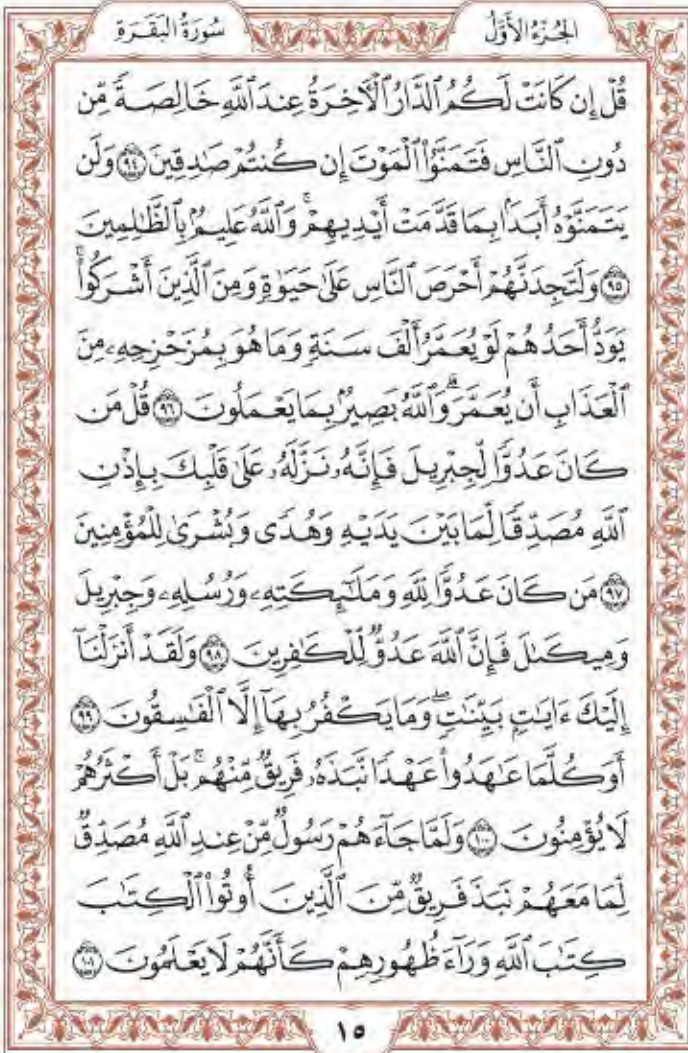 سُورَةُ البَقَرَةِ
الجُزْءُ الأَوَّلُ
قُلۡ إِن كَانَتۡ لَكُمُ ٱلدَّارُ ٱلۡأٓخِرَةُ عِندَ ٱللَّهِ خَالِصَةٗ مِّن
دُونِ ٱلنَّاسِ فَتَمَنَّوُاْ ٱلۡمَوۡتَ إِن كُنتُمۡ صَٰدِقِينَ ٩٤ وَلَن
يَتَمَنَّوۡهُ أَبَدَۢا بِمَا قَدَّمَتۡ أَيۡدِيهِمۡۚ وَٱللَّهُ عَلِيمُۢ بِٱلظَّٰلِمِينَ
٩٥ وَلَتَجِدَنَّهُمۡ أَحۡرَصَ ٱلنَّاسِ عَلَىٰ حَيَوٰةٖ وَمِنَ ٱلَّذِينَ أَشۡرَكُواْۚ
يَوَدُّ أَحَدُهُمۡ لَوۡ يُعَمَّرُ أَلۡفَ سَنَةٖ وَمَا هُوَ بِمُزَحۡزِحِهِۦ مِنَ
ٱلۡعَذَابِ أَن يُعَمَّرَۗ وَٱللَّهُ بَصِيرُۢ بِمَا يَعۡمَلُونَ ٩٦ قُلۡ مَن
كَانَ عَدُوّٗا لِّجِبۡرِيلَ فَإِنَّهُۥ نَزَّلَهُۥ عَلَىٰ قَلۡبِكَ بِإِذۡنِ
ٱللَّهِ مُصَدِّقٗا لِّمَا بَيۡنَ يَدَيۡهِ وَهُدٗى وَبُشۡرَىٰ لِلۡمُؤۡمِنِينَ
٩٧ مَن كَانَ عَدُوّٗا لِّلَّهِ وَمَلَٰٓئِكَتِهِۦ وَرُسُلِهِۦ وَجِبۡرِيلَ
وَمِيكَىٰلَ فَإِنَّ ٱللَّهَ عَدُوّٞ لِّلۡكَٰفِرِينَ ٩٨ وَلَقَدۡ أَنزَلۡنَآ
إِلَيۡكَ ءَايَٰتِۭ بَيِّنَٰتٖۖ وَمَا يَكۡفُرُ بِهَآ إِلَّا ٱلۡفَٰسِقُونَ ٩٩
أَوَكُلَّمَا عَٰهَدُواْ عَهۡدٗا نَّبَذَهُۥ فَرِيقٞ مِّنۡهُمۚ بَلۡ أَكۡثَرُهُمۡ
لَا يُؤۡمِنُونَ ١٠٠ وَلَمَّا جَآءَهُمۡ رَسُولٞ مِّنۡ عِندِ ٱللَّهِ مُصَدِّقٞ
لِّمَا مَعَهُمۡ نَبَذَ فَرِيقٞ مِّنَ ٱلَّذِينَ أُوتُواْ ٱلۡكِتَٰبَ
كِتَٰبَ ٱللَّهِ وَرَآءَ ظُهُورِهِمۡ كَأَنَّهُمۡ لَا يَعۡلَمُونَ ١٠١
١٥